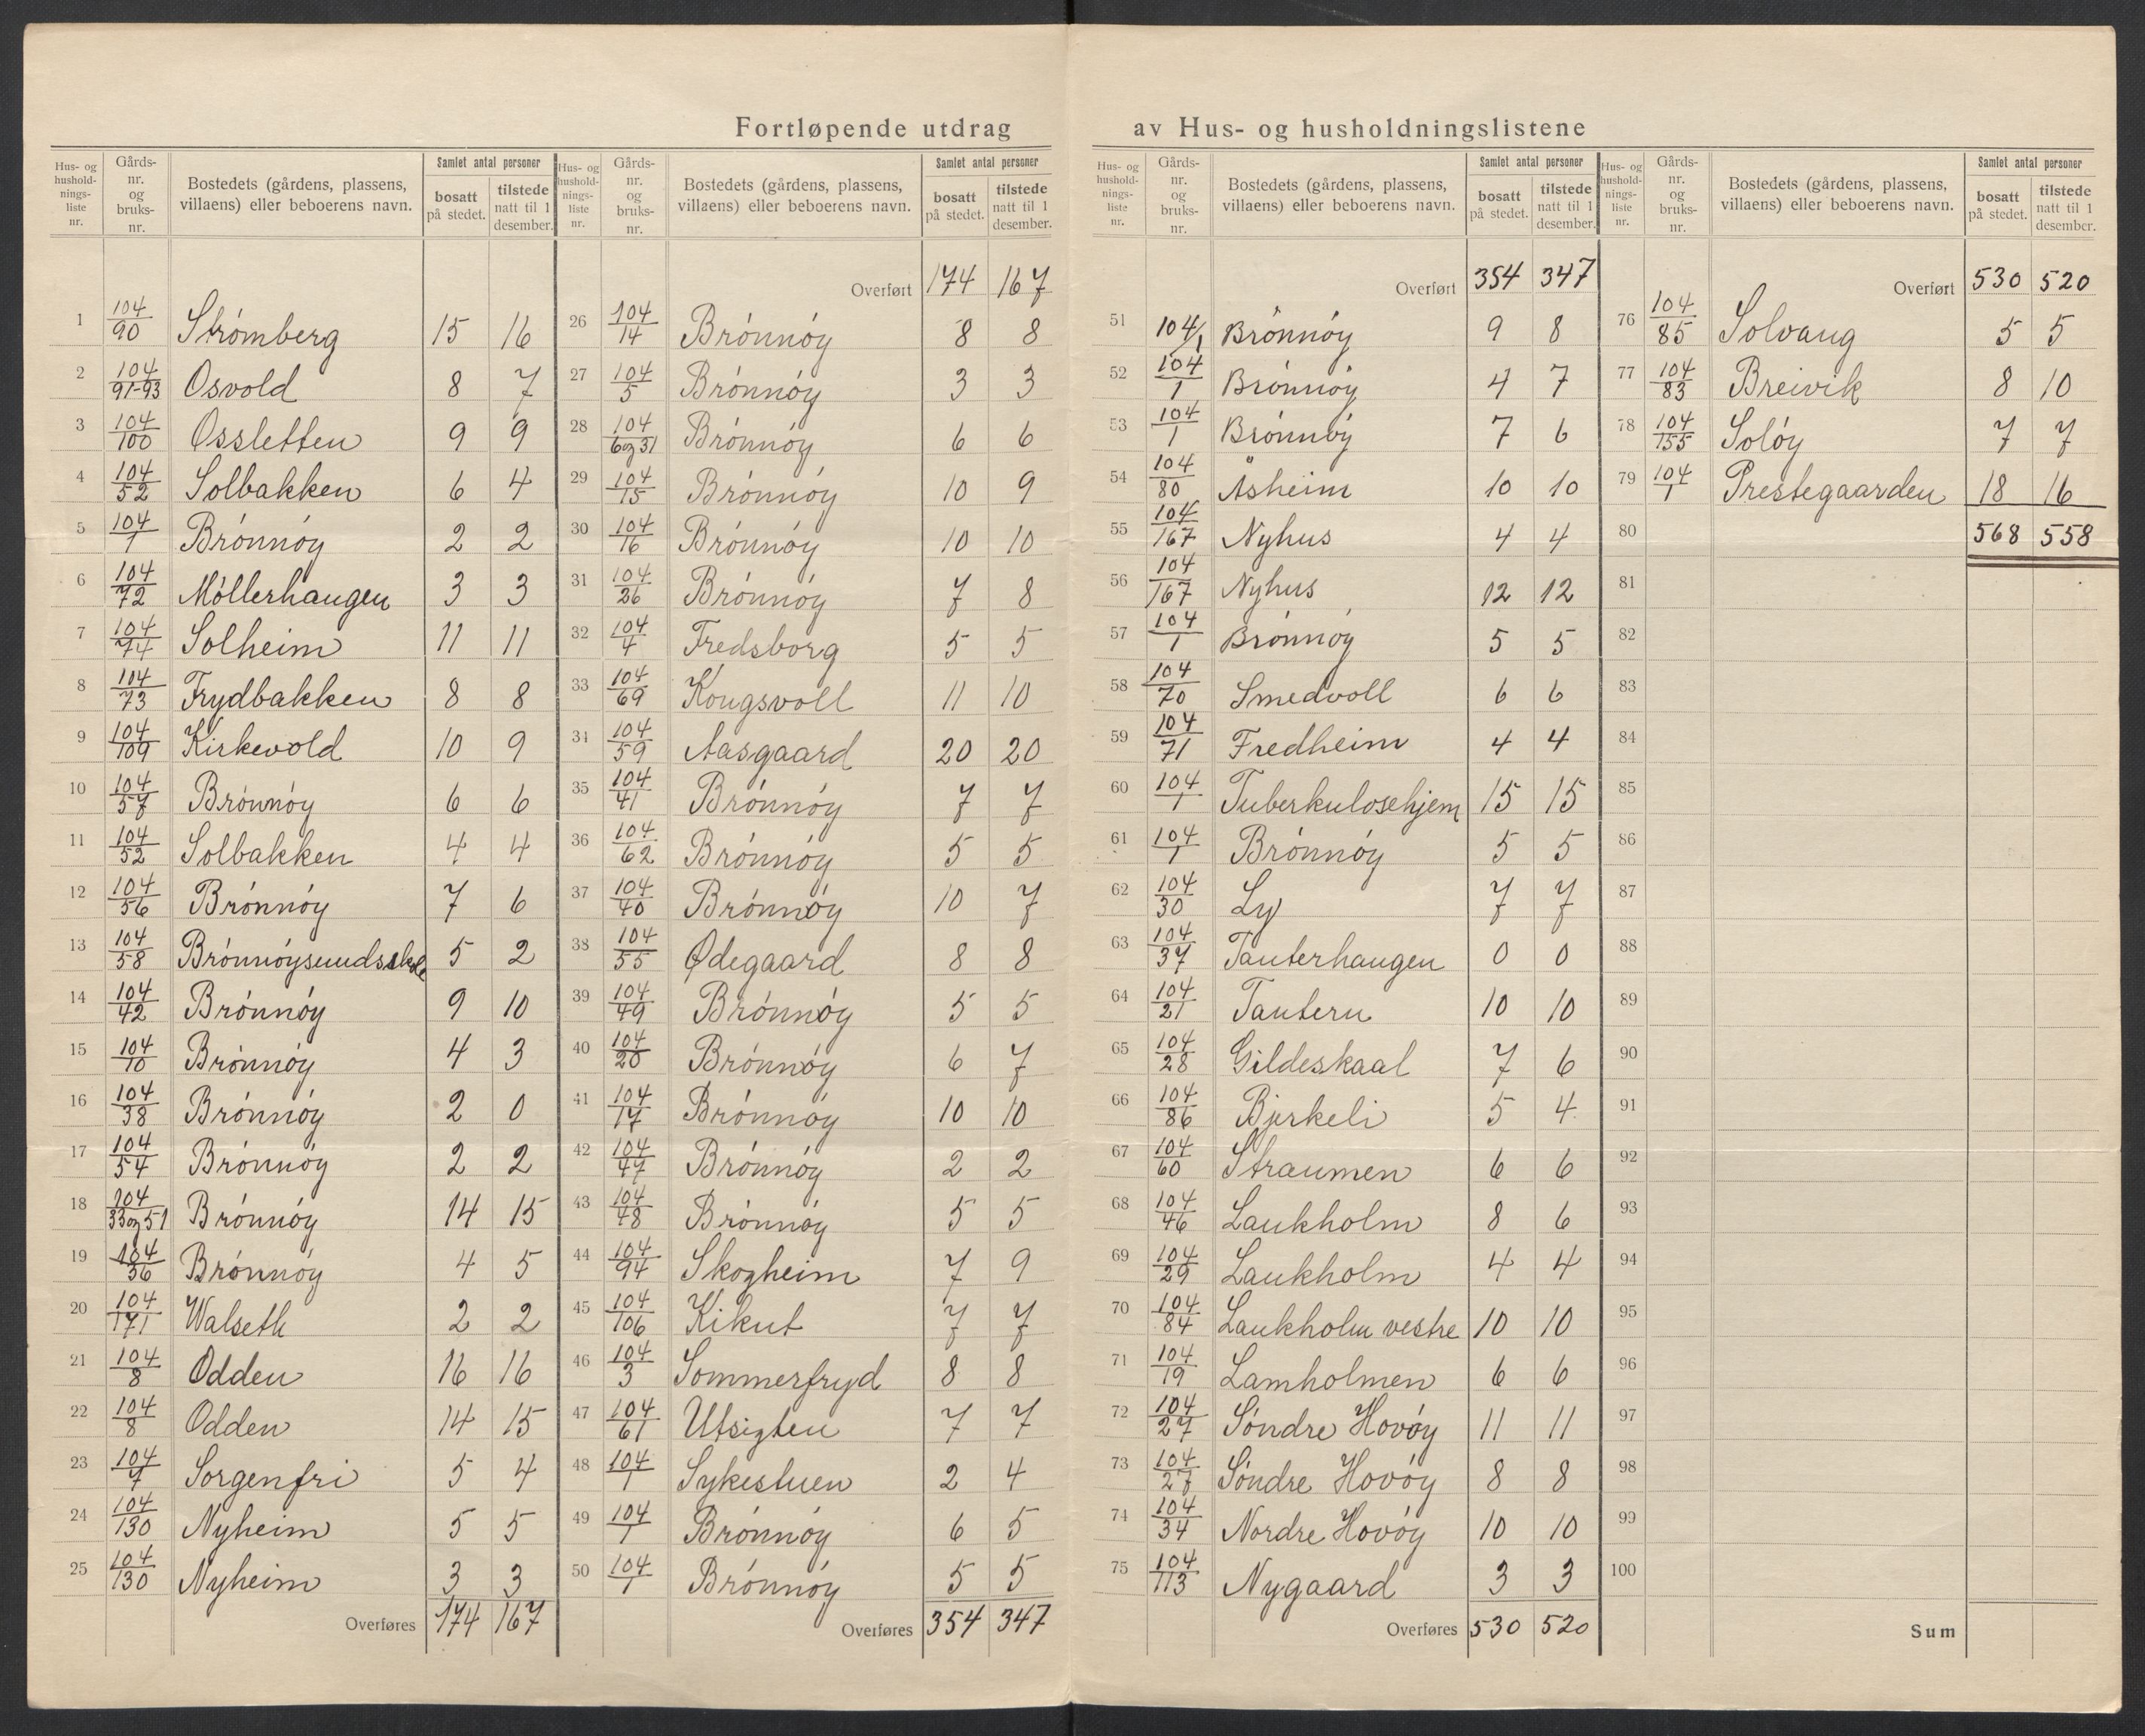 Fortløpende utdrag av Hus- og husholdningslistene
Hus- og husholdnings-liste nr. | Gårds-nr. og bruks-nr. | Bostedets (gårdens, plassens, villaens) eller beboerens navn. | Samlet antal personer bosatt på stedet. | tilstede natt til 1 desember.
1 104/90 Strømberg 15 16
2 104/91-93 Osvold 8 7
3 104/100 Ossletten 9 9
4 104/52 Solbakken 6 4
5 104/1 Brónnóy 2 2
6 104/72 Móllerhaugen 3 3
7 104/74 Solheim 11 11
8 104/73 Frydbakken 8 8
9 104/109 Kirkevold 10 9
10 104/57 Brónnóy 6 6
11 104/52 Solbakken 4 4
12 104/56 Brónnóy 7 6
13 104/58 Brónnóysundskole 5 2
14 104/42 Brónnóy 9 10
15 104/10 Brónnóy 4 3
16 104/38 Brónnóy 2 0
17 104/54 Brónnóy 2 2
18 104/33og51 Brónnóy 14 15
19 104/36 Brónnóy 4 5
20 104/171 Walseth 2 2
21 104/8 Odden 16 16
22 104/8 Odden 14 15
23 104/7 Sorgenfri 5 4
24 104/130 Nyheim 5 5
25 104/130 Nyheim 3 3
Overføres 174 167
Hus- og husholdnings-liste nr. | Gårds-nr. og bruks-nr. | Bostedets (gårdens, plassens, villaens) eller beboerens navn. | Samlet antal personer bosatt på stedet. | tilstede natt til 1 desember.
Overført 174 167
26 104/14 Brónnóy 8 8
27 104/5 Brónnóy 3 3
28 104/6og31 Brónnóy 6 6
29 104/15 Brónnóy 10 9
30 104/16 Brónnóy 10 10
31 104/26 Brónnóy 7 8
32 104/4 Fredsborg 5 5
33 104/69 Kongsvoll 11 10
34 104/59 Aasgaard 20 20
35 104/41 Brónnóy 7 7
36 104/62 Brónnóy 5 5
37 104/40 Brónnóy 10 7
38 104/55 Ødegaard 8 8
39 104/49 Brónnóy 5 5
40 104/20 Brónnóy 6 7
41 104/17 Brónnóy 10 10
42 104/47 Brónnóy 2 2
43 104/48 Brónnóy 5 5
44 104/94 Skogheim 7 9
45 104/106 Kikut 7 7
46 104/3 Sommerfryd 8 8
47 104/61 Utsigten 7 7
48 104/1 Sykestuen 2 4
49 104/1 Brónnóy 6 5
50 104/1 Brónnóy 5 5
Overføres 354 347
Hus- og husholdnings-liste nr. | Gårds-nr. og bruks-nr. | Bostedets (gårdens, plassens, villaens) eller beboerens navn. | Samlet antal personer bosatt på stedet. | tilstede natt til 1 desember.
Overført 354 347
51 104/1 Brónnóy 9 8
52 104/1 Brónnóy 4 7
53 104/1 Brónnóy 7 6
54 104/80 Åsheim 10 10
55 104/167 Nyhus 4 4
56 104/167 Nyhus 12 12
57 104/1 Brónnóy 5 5
58 104/70 Smedvoll 6 6
59 104/71 Fredheim 4 4
60 104/1 Tuberkulosehjem 15 15
61 104/1 Brónnóy 5 5
62 104/30 Ly 7 7
63 104/37 Tauterhaugen 0 0
64 104/21 Tautern 10 10
65 104/28 Gildeskaal 7 6
66 104/86 Bjerkeli 5 4
67 104/60 Straumen 6 6
68 104/46 Laukholm 8 6
69 104/29 Laukholm 4 4
70 104/84 Laukholm vestre 10 10
71 104/19 Lamholmen 6 6
72 104/27 Sóndre Hovóy 11 11
73 104/27 Sóndre Hovóy 8 8
74 104/34 Nordre Hovóy 10 10
75 104/113 Nygaard 3 3
Overføres 530 520
Hus- og husholdnings-liste nr. | Gårds-nr. og bruks-nr. | Bostedets (gårdens, plassens, villaens) eller beboerens navn. | Samlet antal personer bosatt på stedet. | tilstede natt til 1 desember.
Overført 530 520
76 104/85 Solvang 5 5
77 104/83 Breivik 8 10
78 104/155 Solóy 7 7
79 104/1 Prestegaarden 18 16
80 568 558
81
82
83
84
85
86
87
88
89
90
91
92
93
94
95
96
97
98
99
100
Sum